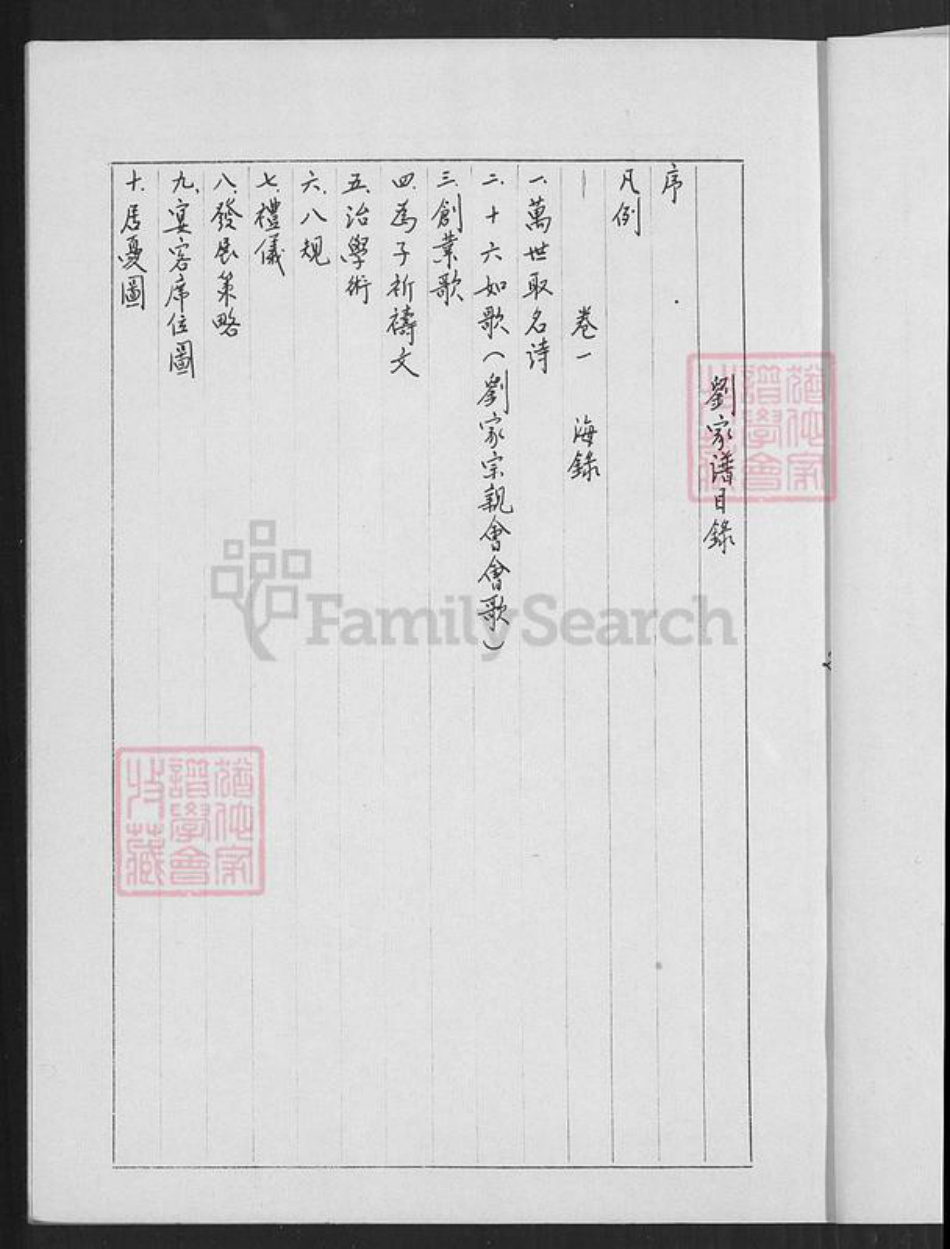 劉家譜目錄
序
凡例
卷一 海錄
一、萬世取名诗
二、十六如歌(劉家宗親會會歌)
三、創業歌
四、為子祈禱文
五、治學術
六、八规
七、禮儀
八、發展策略
九、宴客席位圖
十、居憂圖
FamilySearch
猶他家譜學會收藏
猶他家譜學會收藏